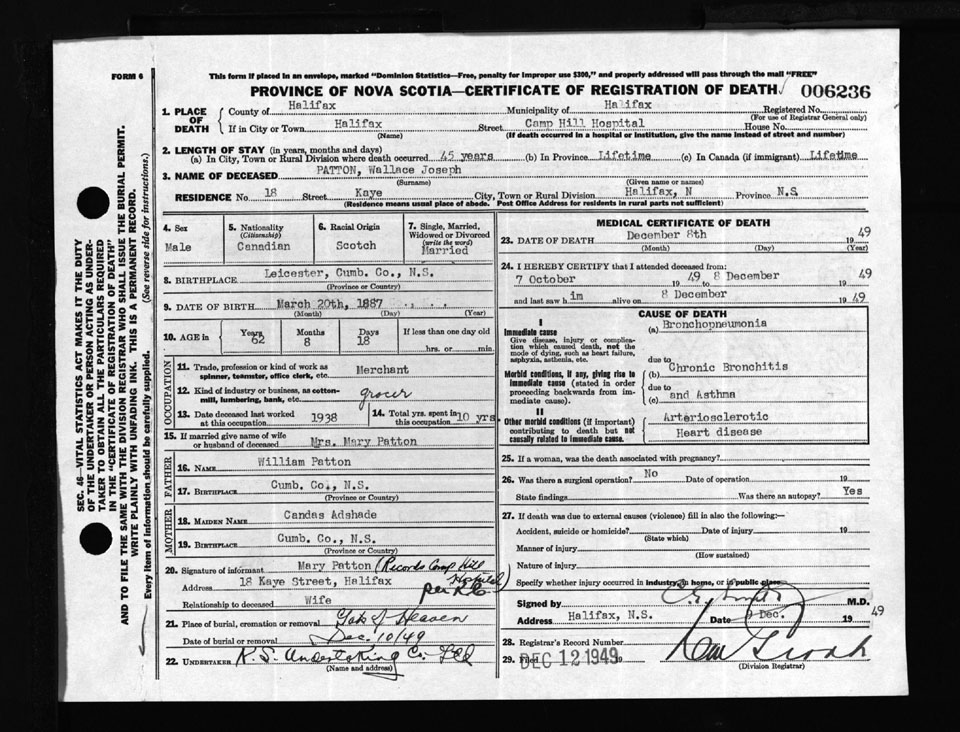 FORM 6
This form if placed in an envelope, marked "Dominion Statistics—Free, penalty for improper use $300," and properly addressed will pass through the mail "FREE"
PROVINCE OF NOVA SCOTIA—CERTIFICATE OF REGISTRATION OF DEATH 006236
1. PLACE OF DEATH
County of Halifax Municipality of Halifax Registered No.
(For use of Registrar General only)
If in City or Town Halifax Street Camp Hill Hospital House No.
(Name) (If death occurred in a hospital or institution, give the name instead of street and number)
2. LENGTH OF STAY (in years, months and days)
(a) In City, Town or Rural Division where death occurred 45 years (b) In Province Lifetime (c) In Canada (if immigrant) Lifetime
3. NAME OF DECEASED PATTON, Wallace Joseph
(Surname) (Given name or names)
RESIDENCE No. 18 Street Kaye City, Town or Rural Division Halifax, N Province N.S
(Residence means usual place of abode. Post Office Address for residents in rural parts not sufficient)
4. Sex
Male
5. Nationality
(Citizenship)
Canadian
6. Racial Origin
Scotch
7. Single, Married, Widowed or Divorced
(write the word)
Married
8. BIRTHPLACE Leicester, Cumb. Co., N.S.
(Province or Country)
9. DATE OF BIRTH March 20th, 1887
(Month) (Day) (Year)
10. AGE in
Years 62
Months 8
Days 18
If less than one day old
hrs. or min.
OCCUPATION
11. Trade, profession or kind of work as spinner, teamster, office clerk, etc. Merchant
12. Kind of industry or business, as cotton-mill, lumbering, bank, etc. grocer
13. Date deceased last worked at this occupation 1938
14. Total yrs. spent in this occupation 10 yrs.
15. If married give name of wife or husband of deceased Mrs. Mary Patton
FATHER
16. NAME William Patton
17. BIRTHPLACE Cumb. Co., N.S.
(Province or Country)
MOTHER
18. MAIDEN NAME Candas Adshade
19. BIRTHPLACE Cumb. Co., N.S.
(Province or Country)
20. Signature of informant Mary Patton (Records Camp Hill Hospital)
Address 18 Kaye Street, Halifax per
Relationship to deceased Wife
21. Place of burial, cremation or removal Gate of Heaven
Date of burial or removal Dec. 10/49
22. UNDERTAKER Undertaking Co. Ltd
(Name and address)
MEDICAL CERTIFICATE OF DEATH
23. DATE OF DEATH December 8th 1949
(Month) (Day) (Year)
24. I HEREBY CERTIFY that I attended deceased from:
7 October 1949 to 8 December 1949
and last saw him alive on 8 December 1949
CAUSE OF DEATH
I
Immediate cause
Give disease, injury or complication which caused death, not the mode of dying, such as heart failure, asphyxia, asthenia, etc.
(a) Bronchopneumonia
due to
Morbid conditions, if any, giving rise to immediate cause (stated in order proceeding backwards from immediate cause).
(b) Chronic Bronchitis
due to
(c) and Asthma
II
Other morbid conditions (if important) contributing to death but not causally related to immediate cause.
Arteriosclerotic
Heart disease
25. If a woman, was the death associated with pregnancy?
26. Was there a surgical operation? No Date of operation 19
State findings Was there an autopsy? Yes
27. If death was due to external causes (violence) fill in also the following:—
Accident, suicide or homicide? Date of injury 19
(State which)
Manner of injury
(How sustained)
Nature of injury
Specify whether injury occurred in industry, in home, or in public place
Signed by M.D.
Address Halifax, N.S. Date 9 Dec. 1949
28. Registrar's Record Number
29. Filed DEC 12 1949 19
(Division Registrar)
SEC. 46—VITAL STATISTICS ACT MAKES IT THE DUTY
OF THE UNDERTAKER OR PERSON ACTING AS UNDER-
TAKER TO OBTAIN ALL THE PARTICULARS REQUIRED
IN THE "CERTIFICATE OF REGISTRATION OF DEATH"
AND TO FILE THE SAME WITH THE DIVISION REGISTRAR WHO SHALL ISSUE THE BURIAL PERMIT.
WRITE PLAINLY WITH UNFADING INK. THIS IS A PERMANENT RECORD.
Every item of information should be carefully supplied. (See reverse side for instructions.)